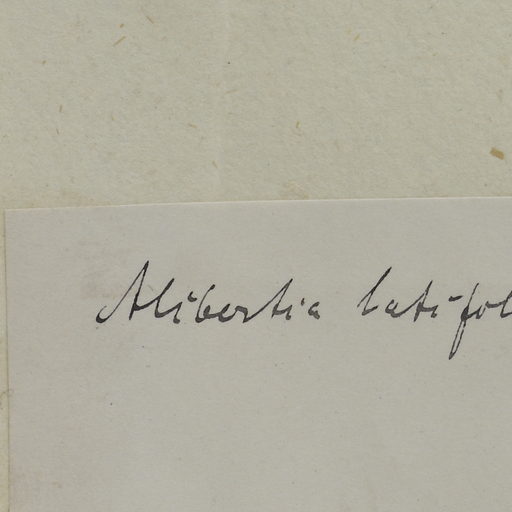 Alibertia latifol